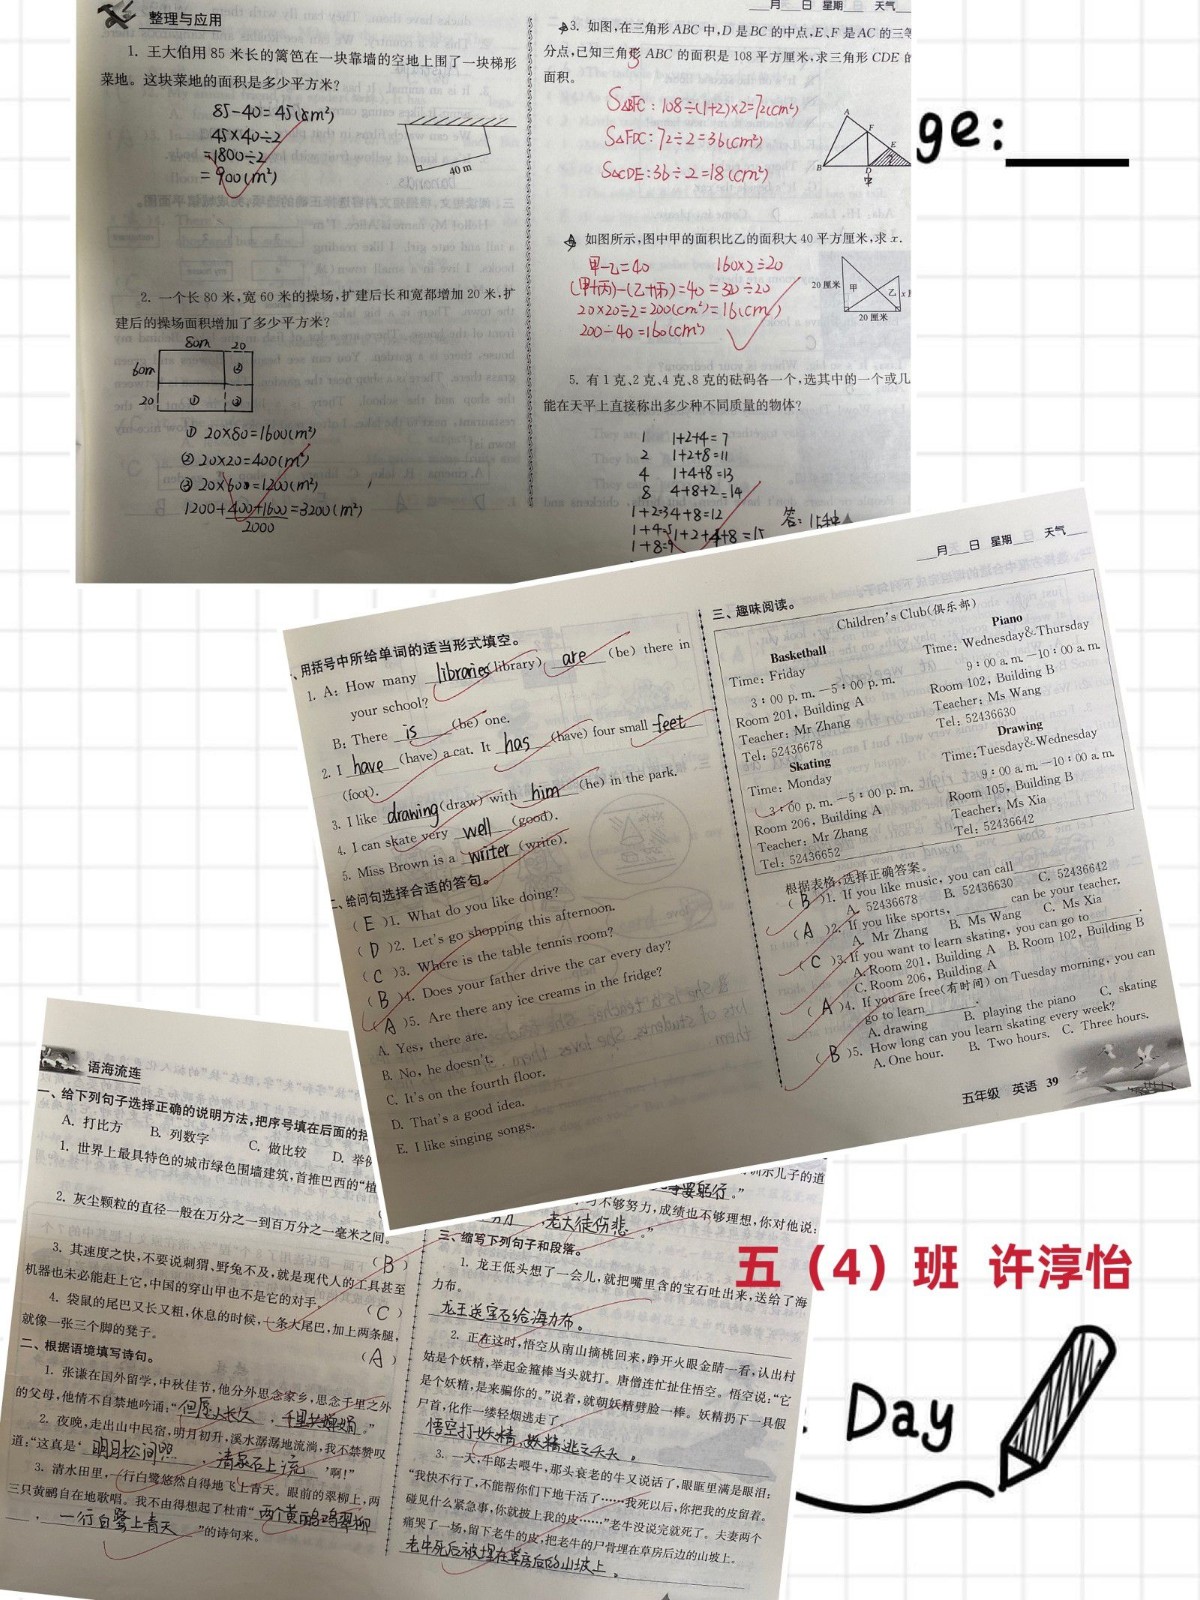 整理与应用
1. 王大伯用 85 米长的篱笆在一块靠墙的空地上围了一块梯形
菜地。这块菜地的面积是多少平方米?
85-40=45(m²)
45×40÷2
=1800÷2
=900(m²)
40 m
2. 一个长 80 米,宽 60 米的操场,扩建后长和宽都增加 20 米,扩
建后的操场面积增加了多少平方米?
80m 20
60m ②
20 ① ③
① 20×80=1600(m²)
② 20×20=400(m²)
③ 20×60=1200(m²)
1200+400+1600=3200(m²)
2000
月 日 星期 天气
3. 如图,在三角形 ABC 中,D 是 BC 的中点,E、F 是 AC 的三等
分点,已知三角形 ABC 的面积是 108 平方厘米,求三角形 CDE 的
面积。
S△BFC:108÷(1+2)×2=72(cm²)
S△FDC:72÷2=36(cm²)
S△CDE:36÷2=18(cm²)
A
F
E
B
D
如图所示,图中甲的面积比乙的面积大 40 平方厘米,求 x.
甲-乙=40 160×2÷20
(甲+丙)-(乙+丙)=40 =320÷20
20×20÷2=200(cm²) =16(cm)
200-40=160(cm²)
20 厘米 甲 乙 x
20 厘米
5. 有 1 克、2 克、4 克、8 克的砝码各一个,选其中的一个或几
能在天平上直接称出多少种不同质量的物体?
1 1+2+4=7
2 1+2+8=11
4 1+4+8=13
8 4+8+2=14
1+2=3 4+8=12
1+4=5 1+2+4+8=15
1+8=9
答:15种
ge:
用括号中所给单词的适当形式填空。
1. A: How many libraries (library) are (be) there in
your school?
B: There is (be) one.
2. I have (have) a cat. It has (have) four small feet
(foot).
3. I like drawing (draw) with him (he) in the park.
4. I can skate very well (good).
5. Miss Brown is a writer (write).
二、给问句选择合适的答句。
( E )1. What do you like doing?
( D )2. Let's go shopping this afternoon.
( C )3. Where is the table tennis room?
( B )4. Does your father drive the car every day?
( A )5. Are there any ice creams in the fridge?
A. Yes, there are.
B. No, he doesn't.
C. It's on the fourth floor.
D. That's a good idea.
E. I like singing songs.
月 日 星期 天气
三、趣味阅读。
Children's Club(俱乐部)
Basketball
Time: Friday
3:00 p. m. —5:00 p. m.
Room 201, Building A
Teacher: Mr Zhang
Tel: 52436678
Piano
Time: Wednesday&Thursday
9:00 a. m. —10:00 a. m.
Room 102, Building B
Teacher: Ms Wang
Tel: 52436630
Skating
Time: Monday
3:00 p. m. —5:00 p. m.
Room 206, Building A
Teacher: Mr Zhang
Tel: 52436652
Drawing
Time: Tuesday&Wednesday
9:00 a. m. —10:00 a. m.
Room 105, Building B
Teacher: Ms Xia
Tel: 52436642
根据表格,选择正确答案。
( B )1. If you like music, you can call
A. 52436678 B. 52436630 C. 52436642
( A )2. If you like sports, can be your teacher.
A. Mr Zhang B. Ms Wang C. Ms Xia
( C )3. If you want to learn skating, you can go to .
A. Room 201, Building A B. Room 102, Building B
C. Room 206, Building A
( A )4. If you are free(有时间) on Tuesday morning, you can
go to learn .
A. drawing B. playing the piano C. skating
( B )5. How long can you learn skating every week?
A. One hour. B. Two hours. C. Three hours.
五年级 英语 39
语海流连
一、给下列句子选择正确的说明方法,把序号填在后面的括
A. 打比方 B. 列数字 C. 做比较 D. 举例
1. 世界上最具特色的城市绿色围墙建筑,首推巴西的“植
2. 灰尘颗粒的直径一般在万分之一到百万分之一毫米之间。
( B )
3. 其速度之快,不要说刺猬、野兔不及,就是现代人的工具甚至
机器也未必能赶上它,中国的穿山甲也不是它的对手。
( C )
4. 袋鼠的尾巴又长又粗,休息的时候,一条大尾巴,加上两条腿,
就像一张三个脚的凳子。
( A )
二、根据语境填写诗句。
1. 张谦在国外留学,中秋佳节,他分外思念家乡,思念千里之外
的父母,他情不自禁地吟诵:“但愿人长久,千里共婵娟。”
2. 夜晚,走出山中民宿,明月初升,溪水潺潺地流淌,我不禁赞叹
道:“这真是‘明月松间照,清泉石上流’啊!”
3. 清水田里,一行白鹭悠然自得地飞上青天。眼前的翠柳上,两
三只黄鹂自在地歌唱。我不由得想起了杜甫“两个黄鹂鸣翠柳
,一行白鹭上青天”的诗句来。
训示儿子的道
要躬行。”
不够努力,成绩也不够理想,你对他说:
,老大徒伤悲。”
三、缩写下列句子和段落。
1. 龙王低头想了一会儿,就把嘴里含的宝石吐出来,送给了海
力布。
龙王送宝石给海力布。
2. 正在这时,悟空从南山摘桃回来,睁开火眼金睛一看,认出村
姑是个妖精,举起金箍棒当头就打。唐僧连忙扯住悟空。悟空说:“它
是个妖精,是来骗你的。”说着,就朝妖精劈脸一棒。妖精扔下一具假
尸首,化作一缕轻烟逃走了。
悟空打妖精,妖精逃之夭夭。
3. 一天,牛郎去喂牛,那头衰老的牛又说话了,眼眶里满是眼泪:
“我快不行了,不能帮你们下地干活了……我死以后,你把我的皮留着。
碰见什么紧急事,你就披上我的皮……”老牛没说完就死了。夫妻两个
痛哭了一场,留下老牛的皮,把老牛的尸骨埋在草房后边的山坡上。
老牛死后被埋在草房后的山坡上。
五（4）班 许淳怡
Day